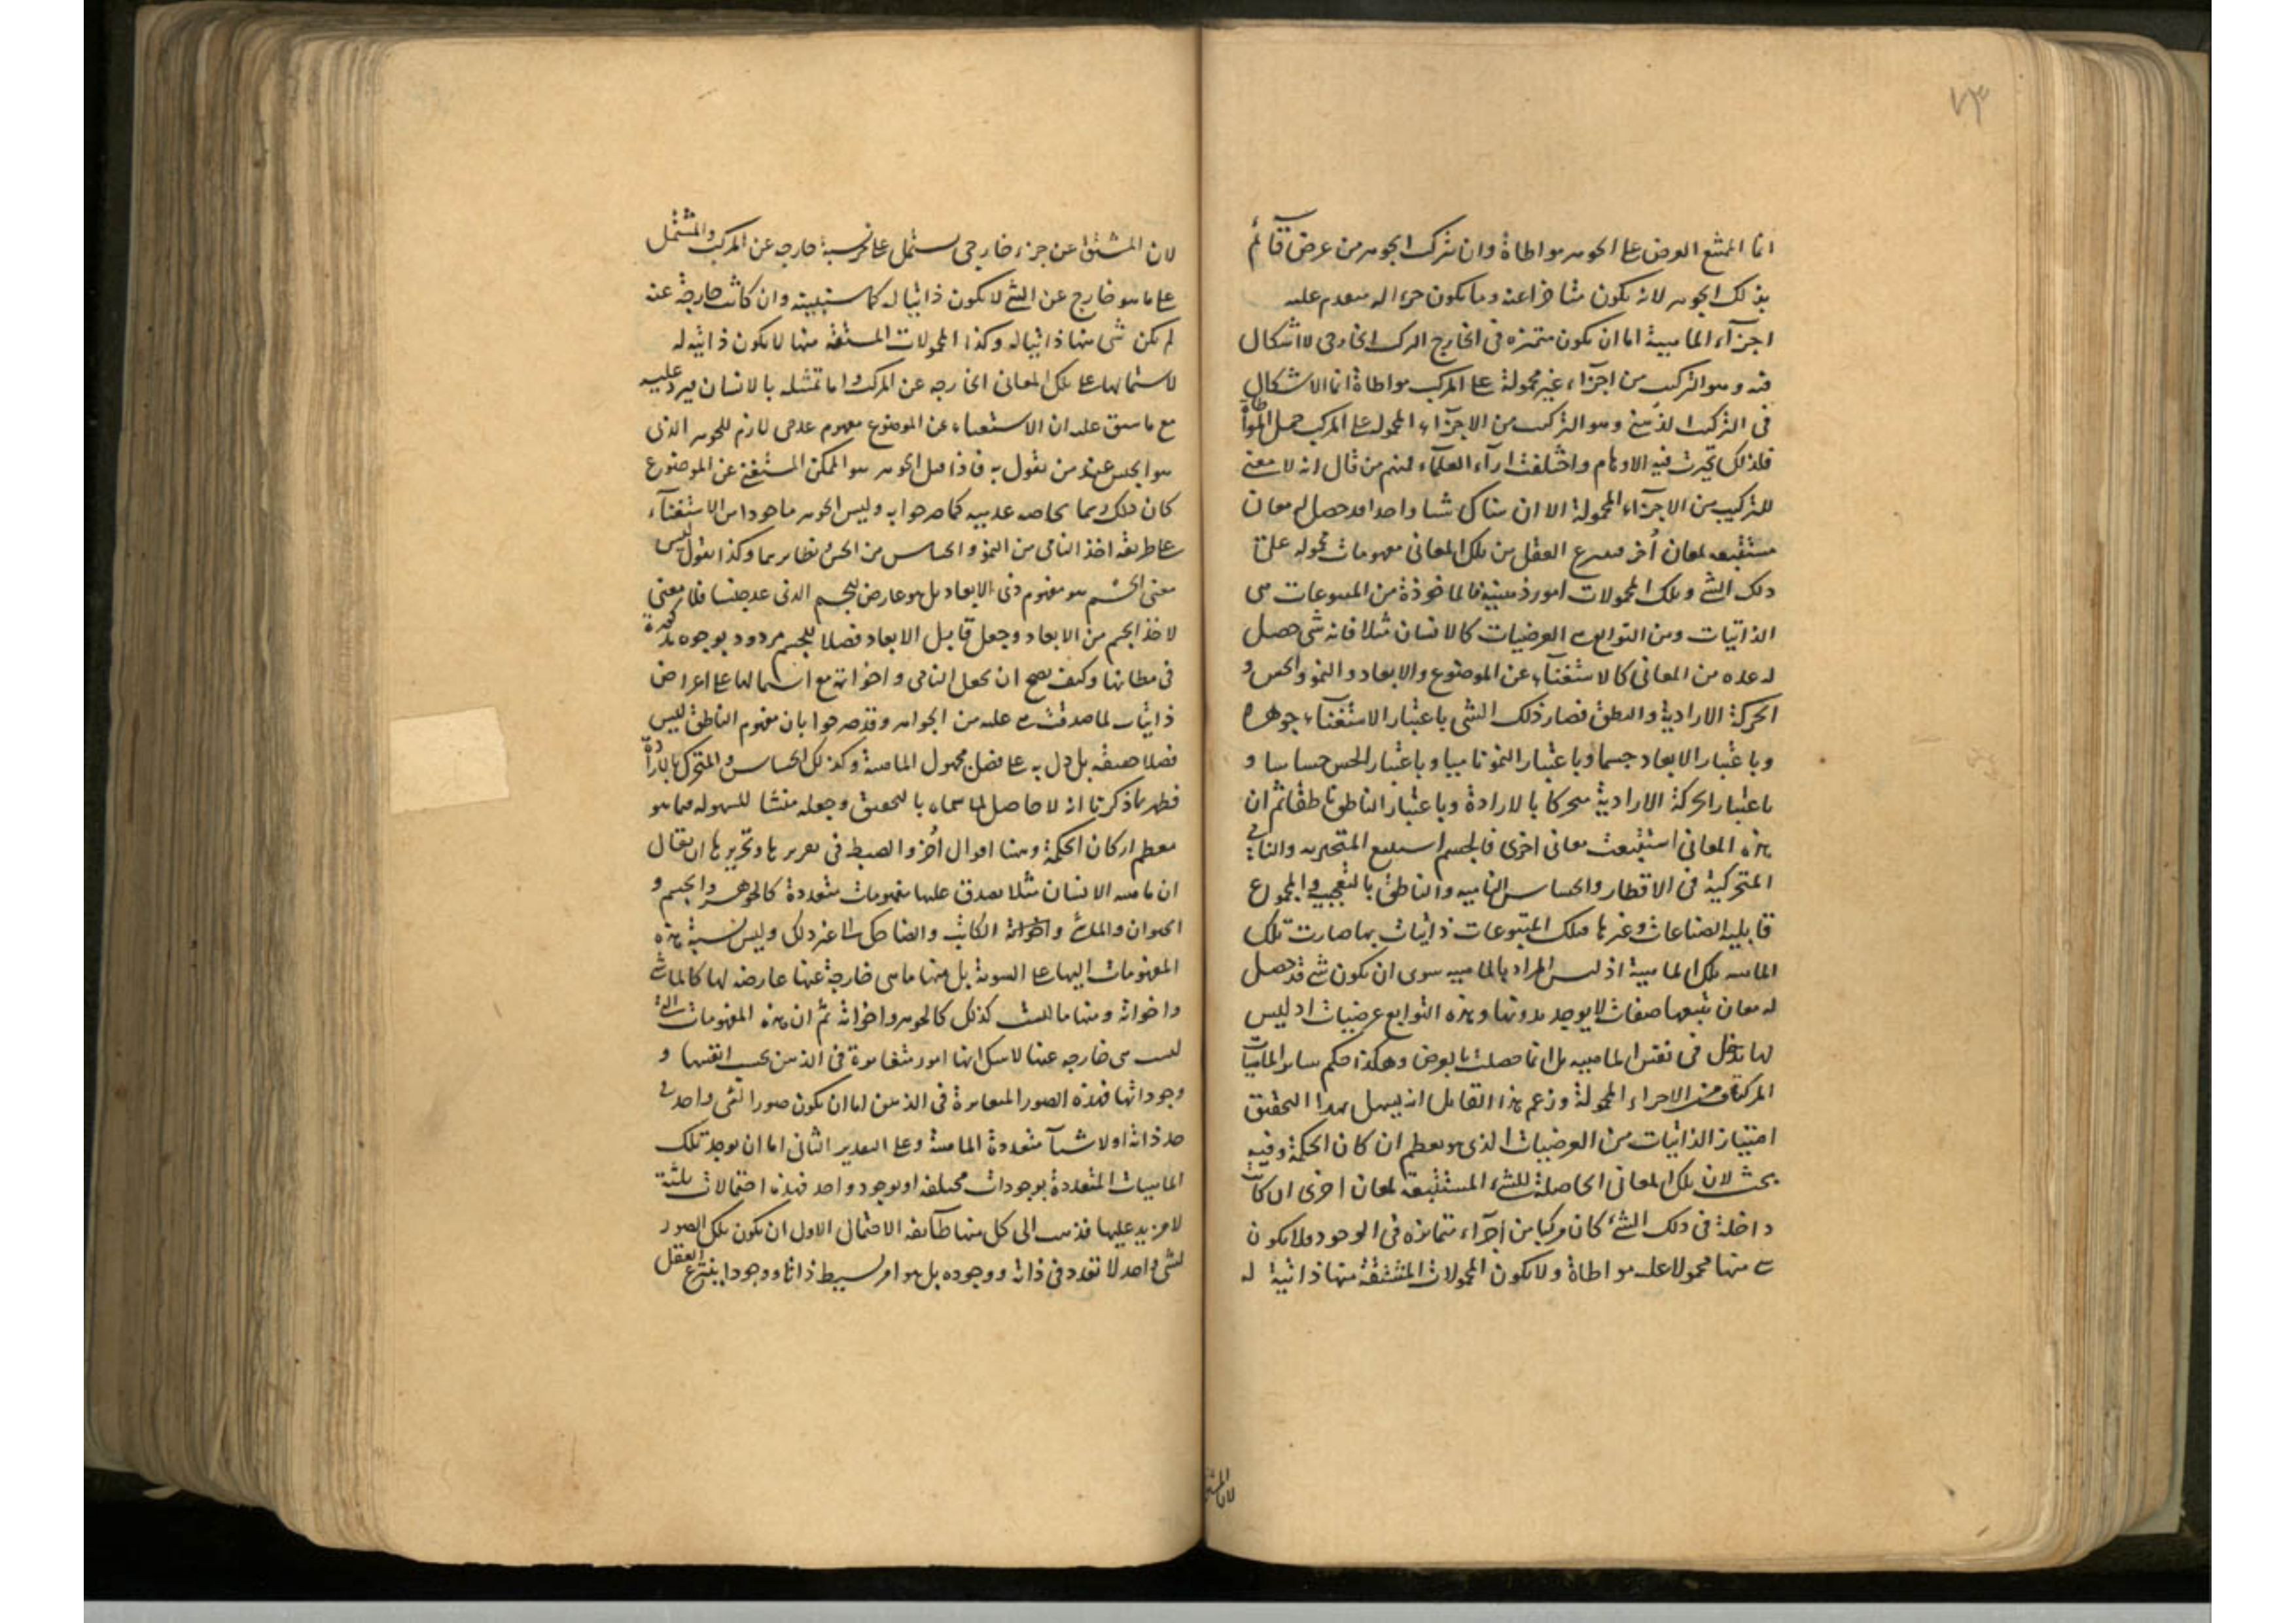 ٧٣
انما الممتنع العرض على الجوهر مواطاة وان تركب الجوهر من عرض قائم
بذلك الجوهر لانه يكون متاخرا عنه وما يكون جزءا له متقدم عليه
اجزاء الماهية اما ان يكون متميزه فى الخارج المركب الخارجى لا اشكال
فيه وهو التركيب من اجزاء غير محمولة على المركب مواطاة انما الاشكال
فى التركيب الذهنى وهو التركيب من الاجزاء المحمولة على المركب حمل المواطاة
فلذلك تحيرت فيه الاوهام واختلفت اراء العلماء فمنهم من قال انه لا معنى
للتركيب من الاجزاء المحمولة الا ان هناك شيا واحدا قد حصل له معان
مستتبعه لمعان أخر فينتزع العقل من تلك المعانى مفهومات محمولة على
ذلك الشئ وتلك المحمولات امور ذهنية فالماخوذة من المتبوعات هى
الذاتيات ومن التوابع العرضيات كالانسان مثلا فانه شى حصل
له عده من المعانى كالاستغناء عن الموضوع والابعاد والنمو والحس و
الحركة الارادية والنطق فصار ذلك الشى باعتبار الاستغناء جوهرا
وباعتبار الابعاد جسما وباعتبار النمو ناميا وباعتبار الحس حساسا و
باعتبار الحركة الارادية متحركا بالارادة وباعتبار الناطق ناطقا ثم ان
هذه المعانى استتبعت معانى اخرى فالجسم استتبع المتحيزيه والنامى
المتحركية فى الاقطار والحساس الناميه والناطق بالتعجب والمجموع
قابلية الصناعات وغيرها فتلك المتبوعات ذاتيات بها صارت تلك
الماهيه تلك الماهية اذ ليس المراد بالماهيه سوى ان يكون شئ قد حصل
له معان تتبعها صفات لا يوجد بدونها وهذه التوابع عرضيات اذ ليس
لها مدخل فى تقنن الماهيه بل انما حصلت بالعرض وهكذا حكم ساير الماهيات
المركبة من الاجزاء المحمولة وزعم هذا القايل انه يسهل بهذا التحقيق
امتياز الذاتيات من العرضيات الذى هو معظم اركان الحكمة وفيه
بحث لان تلك المعانى الحاصلة للشئ المستتبعة لمعان اخرى ان كانت
داخلة فى ذلك الشئ كان مركبا من اجزاء متمايزه فى الوجود فلا يكون
شى منها محمولا عليه مواطاة ولا يكون المحمولات المشتقة منها ذاتية له
لان المشتق
لان المشتق من جزء خارجى يشتمل على نسبة خارجه عن المركب والمشتمل
على ما هو خارج عن الشئ لا يكون ذاتيا له كما ستبينه وان كانت خارجة عنه
لم يكن شى منها ذاتيا له وكذا المحمولات المشتقه منها لا يكون ذاتيه له
لاشتمالها على تلك المعانى الخارجه عن المركب واما تمثيله بالانسان فيرد عليه
مع ما سبق عليه ان الاستغناء عن الموضوع مفهوم عدمى لازم للجوهر الذى
هو الجنس عند من يقول به فاذا قيل الجوهر هو الممكن المستغنى عن الموضوع
كان ذلك رسما بخاصه عدميه كما صرحوا به وليس الجوهر ماخوذا من الاستغناء
على طريقه اخذ النامى من النمو والحساس من الحس ونظايرهما وكذا نقول ليس
معنى الجسم هو مفهوم ذى الابعاد بل هو عارض للجسم الذى عد جنسا فلا معنى
لاخذ الجسم من الابعاد وجعل قابل الابعاد فصلا للجسم مردود بوجوه مذكورة
فى مظانها وكيف يصح ان يجعل النامى واخواته مع اشتمالها على اعراض
ذاتيات لما صدقت عليه من الجواهر وقد صرحوا بان مفهوم الناطق ليس
فصلا حقيقه بل دل به على فصل مجهول الماهية وكذلك الحساس والمتحرك بالارادة
فظهر بما ذكرنا انه لا حاصل لما سماه بالتحقيق وجعله منشا للسهولة فيما هو
معظم اركان الحكمة وهنا اقوال أخر والضبط فى تقريرها وتحريرها ان يقال
ان ماهيه الانسان مثلا يصدق عليها مفهومات متعددة كالجوهر والجسم و
الحيوان والماشى واخواته الكاتب والضاحك الى غير ذلك وليس نسبة هذه
المفهومات اليها على السوية بل منها ما هى خارجة عنها عارضه لها كالماشى
واخواته ومنها ما ليست كذلك كالجوهر واخواته ثم ان هذه المفهومات التى
ليست هى خارجه عنها لا شك انها امور متغايرة فى الذهن بحسب انفسها و
وجوداتها فهذه الصور المتغايرة فى الذهن اما ان يكون صورا لشى واحد فى
حد ذاته او لاشياء متعددة الماهية وعلى التقدير الثانى اما ان يوجد تلك
الماهيات المتعددة بوجودات مختلفه او بوجود واحد فهذه احتمالات ثلثة
لا مزيد عليها فذهب الى كل منها طائفه الاحتمال الاول ان يكون تلك الصور
لشى واحد لا تعدد فى ذاته ووجوده بل هو امر بسيط ذاتا ووجودا ينتزع العقل